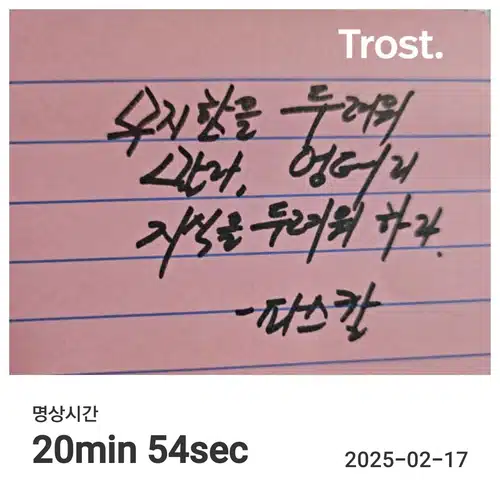 Trost.
무지함을 두려워
말라, 엉터리
지식을 두려워 하라.
-파스칼
명상시간
20min 54sec
2025-02-17